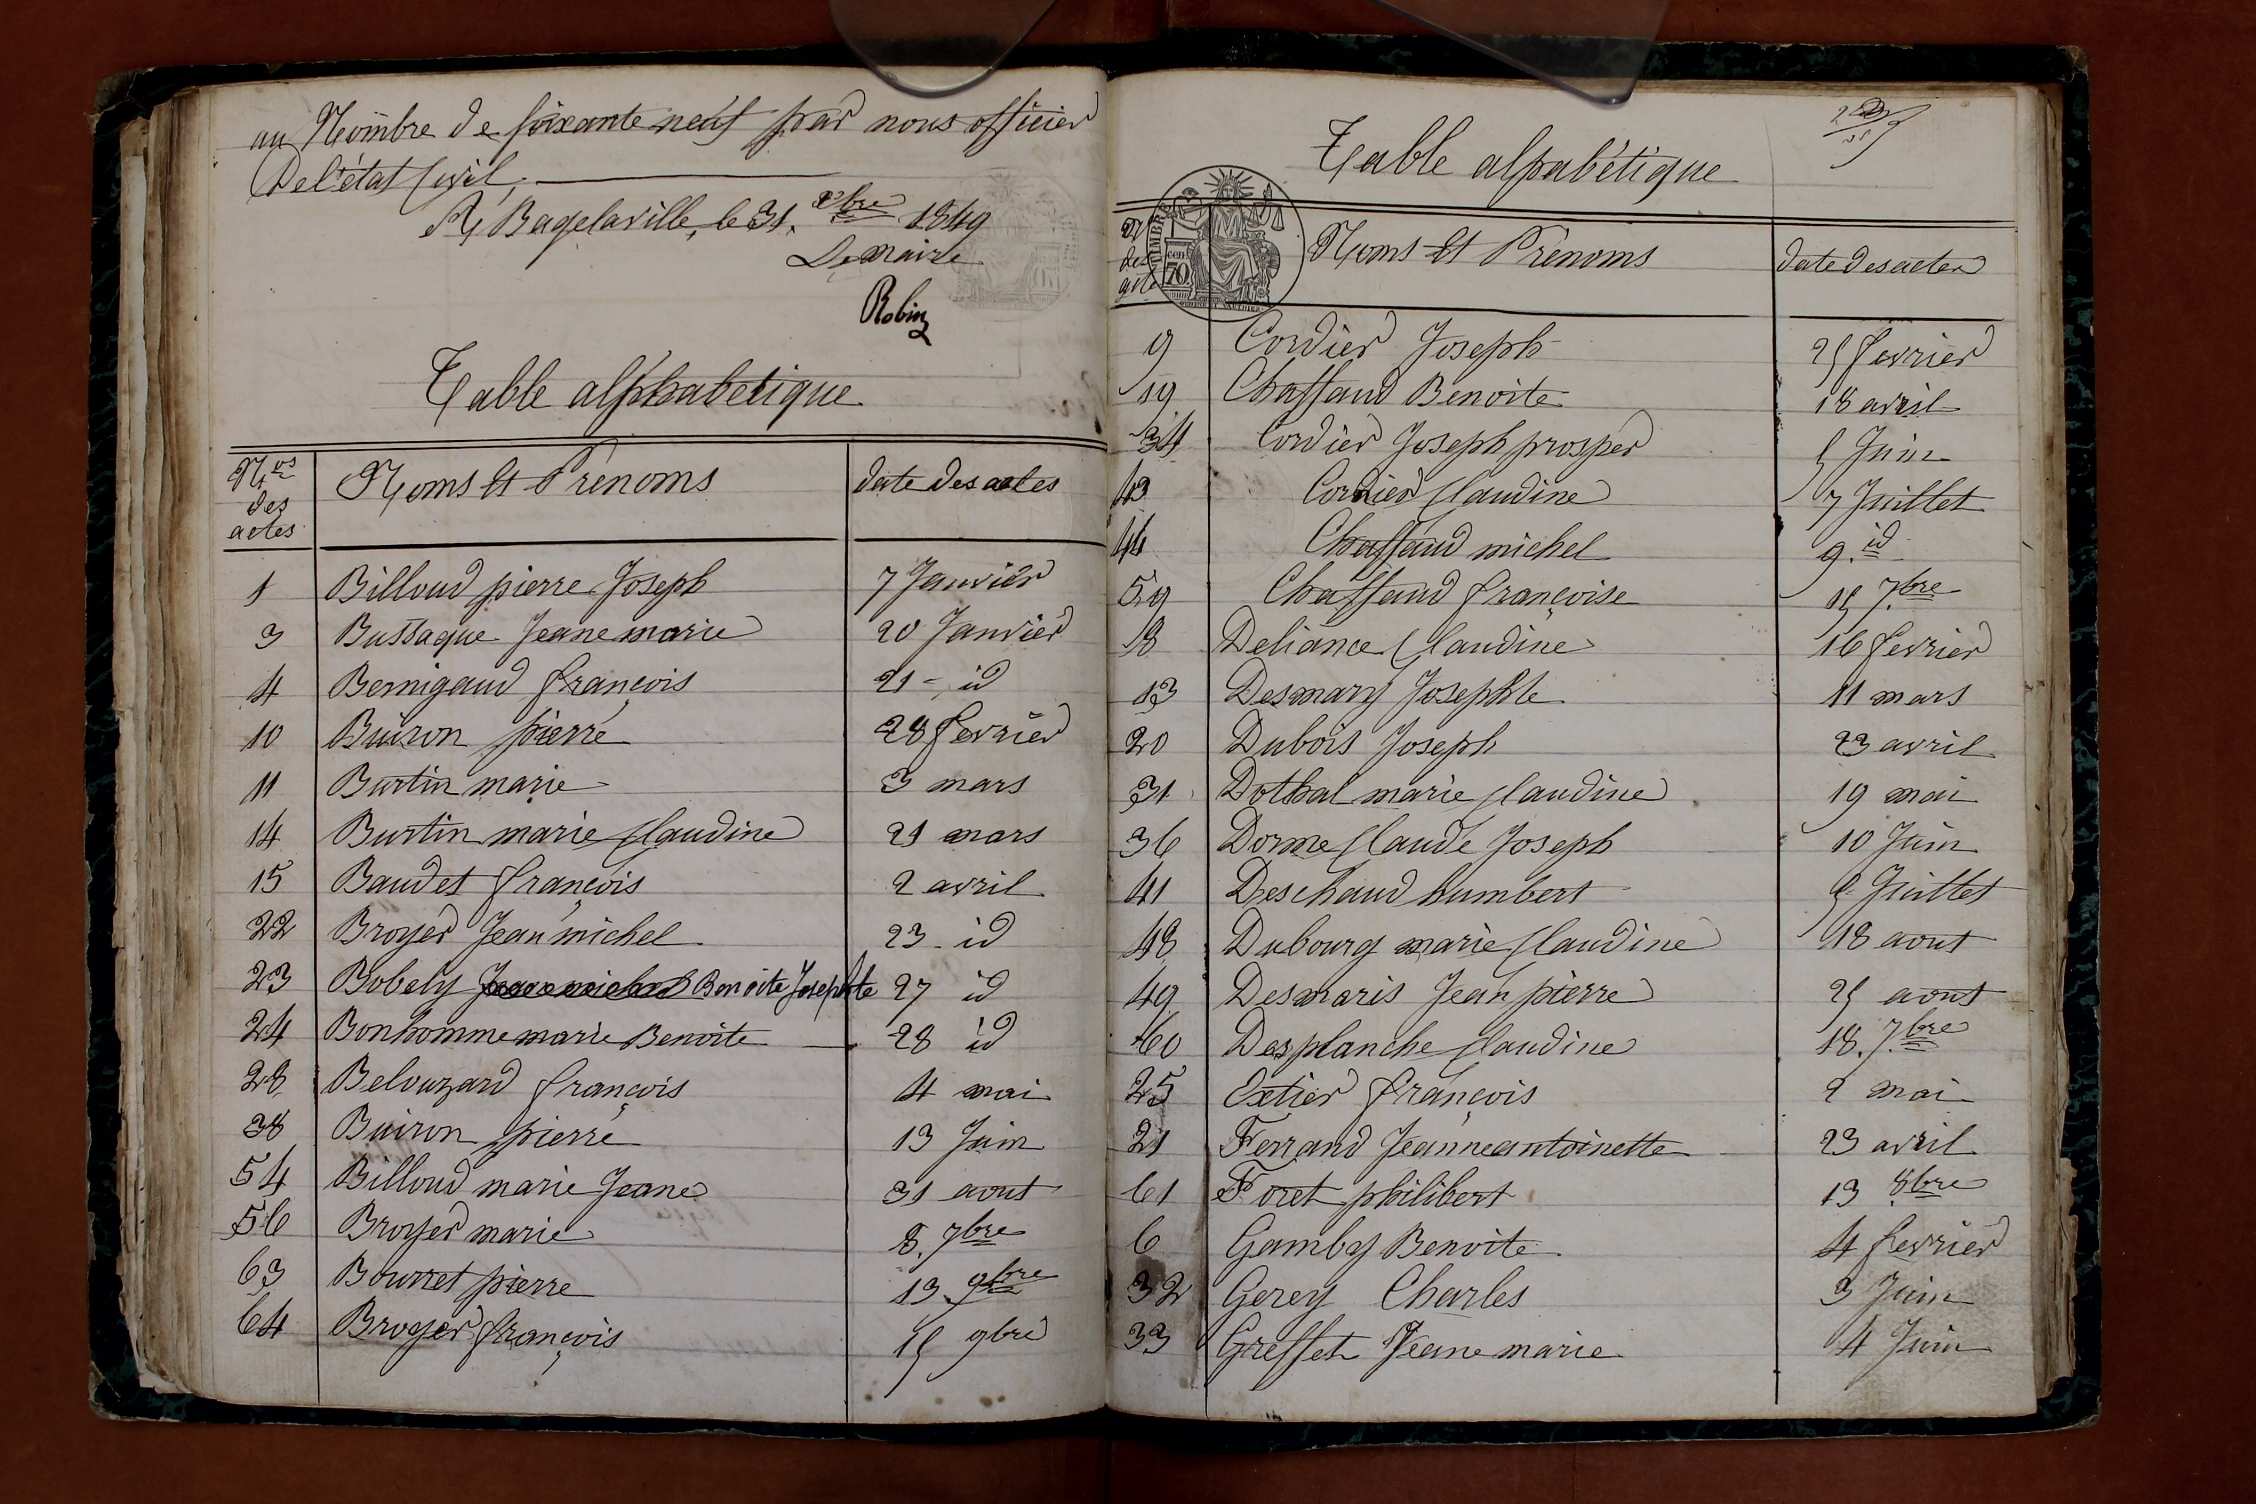 au Nombre de soixante neuf par nous officier
De l'état Civil,
A Bagelaville, le 31. xbre 1849
Le maire
Robin
Table alphabetique
Nos des actes Noms et Prenoms date des actes
1 Billoud pierre Joseph 7 Janvier
3 Bussaque Jeane marie 20 Janvier
4 Bernigaud françois 21 - id
10 Buiron pierre 28 fevrier
11 Burtin marie 3 mars
14 Burtin marie Claudine 21 mars
15 Baudet françois 2 avril
22 Broyer Jean michel 23 id
23 Bobely Jean michel Benoite Josephte 27 id
24 Bonhomme marie Benoite 28 id
28 Belouzard françois 4 mai
38 Buiron pierre 13 Juin
54 Billoud marie Jeane 31 aout
56 Broyer marie 8. 7bre
63 Bourret pierre 13 9bre
64 Broyer françois 15 9bre
Table alpabétique
Nos des actes Noms et Prénoms date des actes
TIMBRE
70 cen
9 Cordier Joseph 25 fevrier
19 Chaffaud Benoite 18 avril
34 Cordier Joseph prosper 5 Juin
43 Cordier Claudine 7 Juillet
44 Chaffaud michel 9. id
59 Chaffaud françoise 15 7.bre
18 Deliance Claudine 16 fevrier
13 Desmary Josephte 11 mars
20 Dubois Joseph 23 avril
31 Dothal marie Claudine 19 mai
36 Dorme Claude Joseph 10 Juin
41 Deschaud humbert 5 Juillet
48 Dubourg marie Claudine 18 aout
49 Desmaris Jean pierre 25 aout
60 Desplanche Claudine 18. 7.bre
25 Extier françois 2 mai
21 Ferrand Jeanne antoinette 23 avril
61 Foret philibert 13 8bre
6 Gamby Benoite 4 fevrier
32 Gerey Charles 3 Juin
33 Greffet Jeane marie 4 Juin